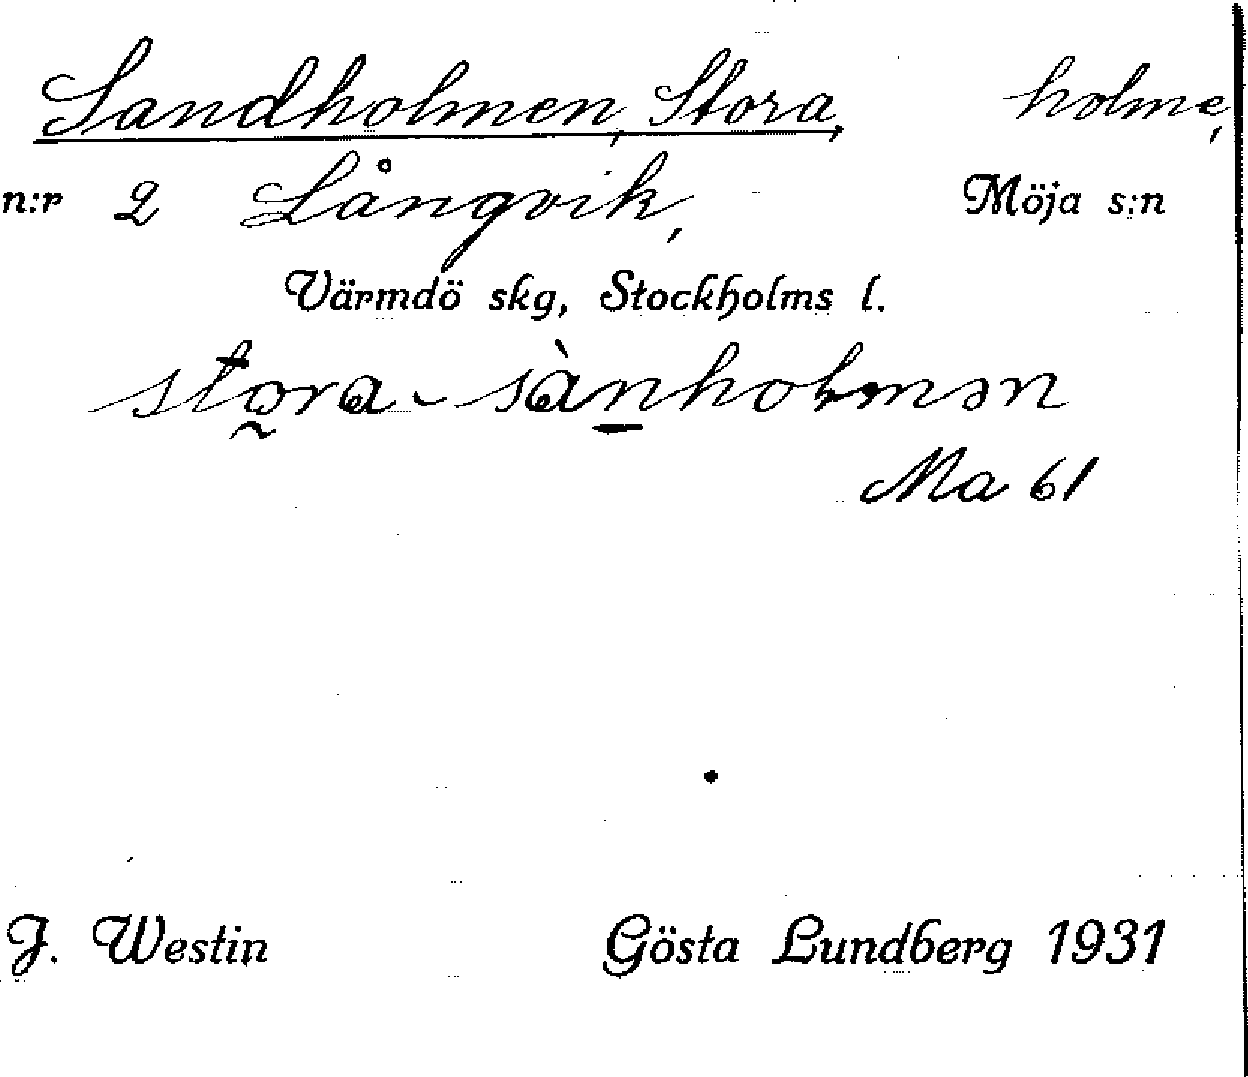 Sandholmen, Stora, holme,
n:r 2 Långvik, Möja s:n
Värmdö skg, Stockholms l.
sto̰ra-sàn̲holmən
Ma 61
J. Westin Gösta Lundberg 1931